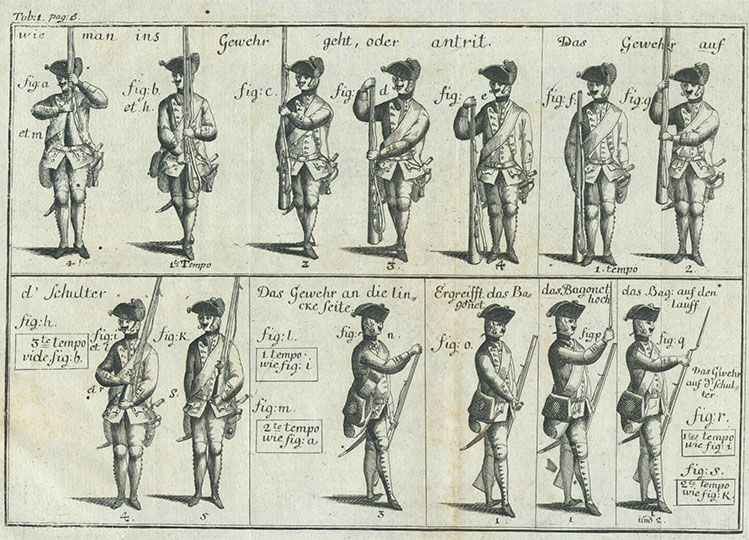 Tab: 1. pag: 8.
wie man ins Gewehr geht, oder antrit.
Das Gewehr auf
fig: a
et m
4
fig: b.
et. h.
1te Tempo
fig: c.
2
fig: d
3.
fig: e
4
fig: f.
1. tempo
fig: g
2.
d' Schulter
fig: h.
3te tempo
vide fig: b.
fig: i
et l
et r
4.
fig: K.
s.
5
Das Gewehr an die lin,,
cke seite.
fig: l.
1. tempo.
wie fig: i
fig: m.
2te tempo
wie fig: a
fig: n.
3
Ergreifft das Ba-
gonet
fig: o.
1.
das Bagonet
hoch
fig p
1
das Bag: auf den
Lauff.
fig: q
1
und 2.
Das Gwehr
auf d' schul-
ter.
fig: r.
1tes tempo
wie fig: i
fig: s.
2te tempo
wie fig: K.